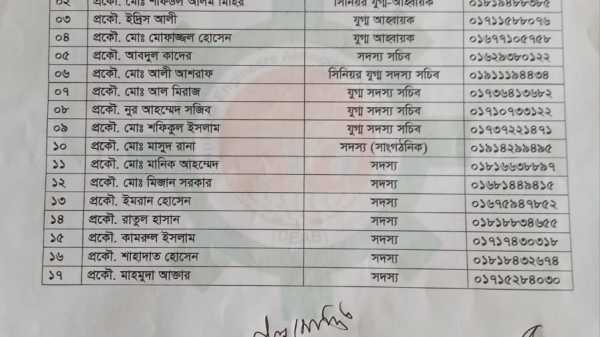 ০২ প্রকৌ. মোঃ শফিউল আলম মিহির সিনিয়র যুগ্ম-আহ্বায়ক ০১৮১৯৪৮৮৩৮৫
০৩ প্রকৌ. ইদ্রিস আলী যুগ্ম আহ্বায়ক ০১৭১১৫৮৮০৭৬
০৪ প্রকৌ. মোঃ মোফাজ্জল হোসেন যুগ্ম আহ্বায়ক ০১৬৭৭১০৫৭৫৮
০৫ প্রকৌ. আবদুল কাদের সদস্য সচিব ০১৬২৯৩৮০১২২
০৬ প্রকৌ. মোঃ আলী আশরাফ সিনিয়র যুগ্ম সদস্য সচিব ০১৯১১১৯৪৪৩৪
০৭ প্রকৌ. মোঃ আল মিরাজ যুগ্ম সদস্য সচিব ০১৭৩৬৪১৩৬৮২
০৮ প্রকৌ. নুর আহম্মেদ সজিব যুগ্ম সদস্য সচিব ০১৭১০৭৩৩১২২
০৯ প্রকৌ. মোঃ শফিকুল ইসলাম যুগ্ম সদস্য সচিব ০১৭৩৭২২১৪৭১
১০ প্রকৌ. মোঃ মাসুদ রানা সদস্য (সাংগঠনিক) ০১৯১৪২৯৯৪৯৫
১১ প্রকৌ. মোঃ মানিক আহম্মেদ সদস্য ০১৮১৬৬৩৮৮৯৭
১২ প্রকৌ. মোঃ মিজান সরকার সদস্য ০১৬৮১৪৪৯৪১৫
১৩ প্রকৌ. ইমরান হোসেন সদস্য ০১৬৭৫৯৪৭৮৫২
১৪ প্রকৌ. রাতুল হাসান সদস্য ০১৮১৮৮৩৪৬৫৫
১৫ প্রকৌ. কামরুল ইসলাম সদস্য ০১৭১৭৪৩০৩১৮
১৬ প্রকৌ. শাহাদাত হোসেন সদস্য ০১৮১৮৪৩২৬৭৪
১৭ প্রকৌ. মাহমুদা আক্তার সদস্য ০১৭১৫২৮৪০৩০